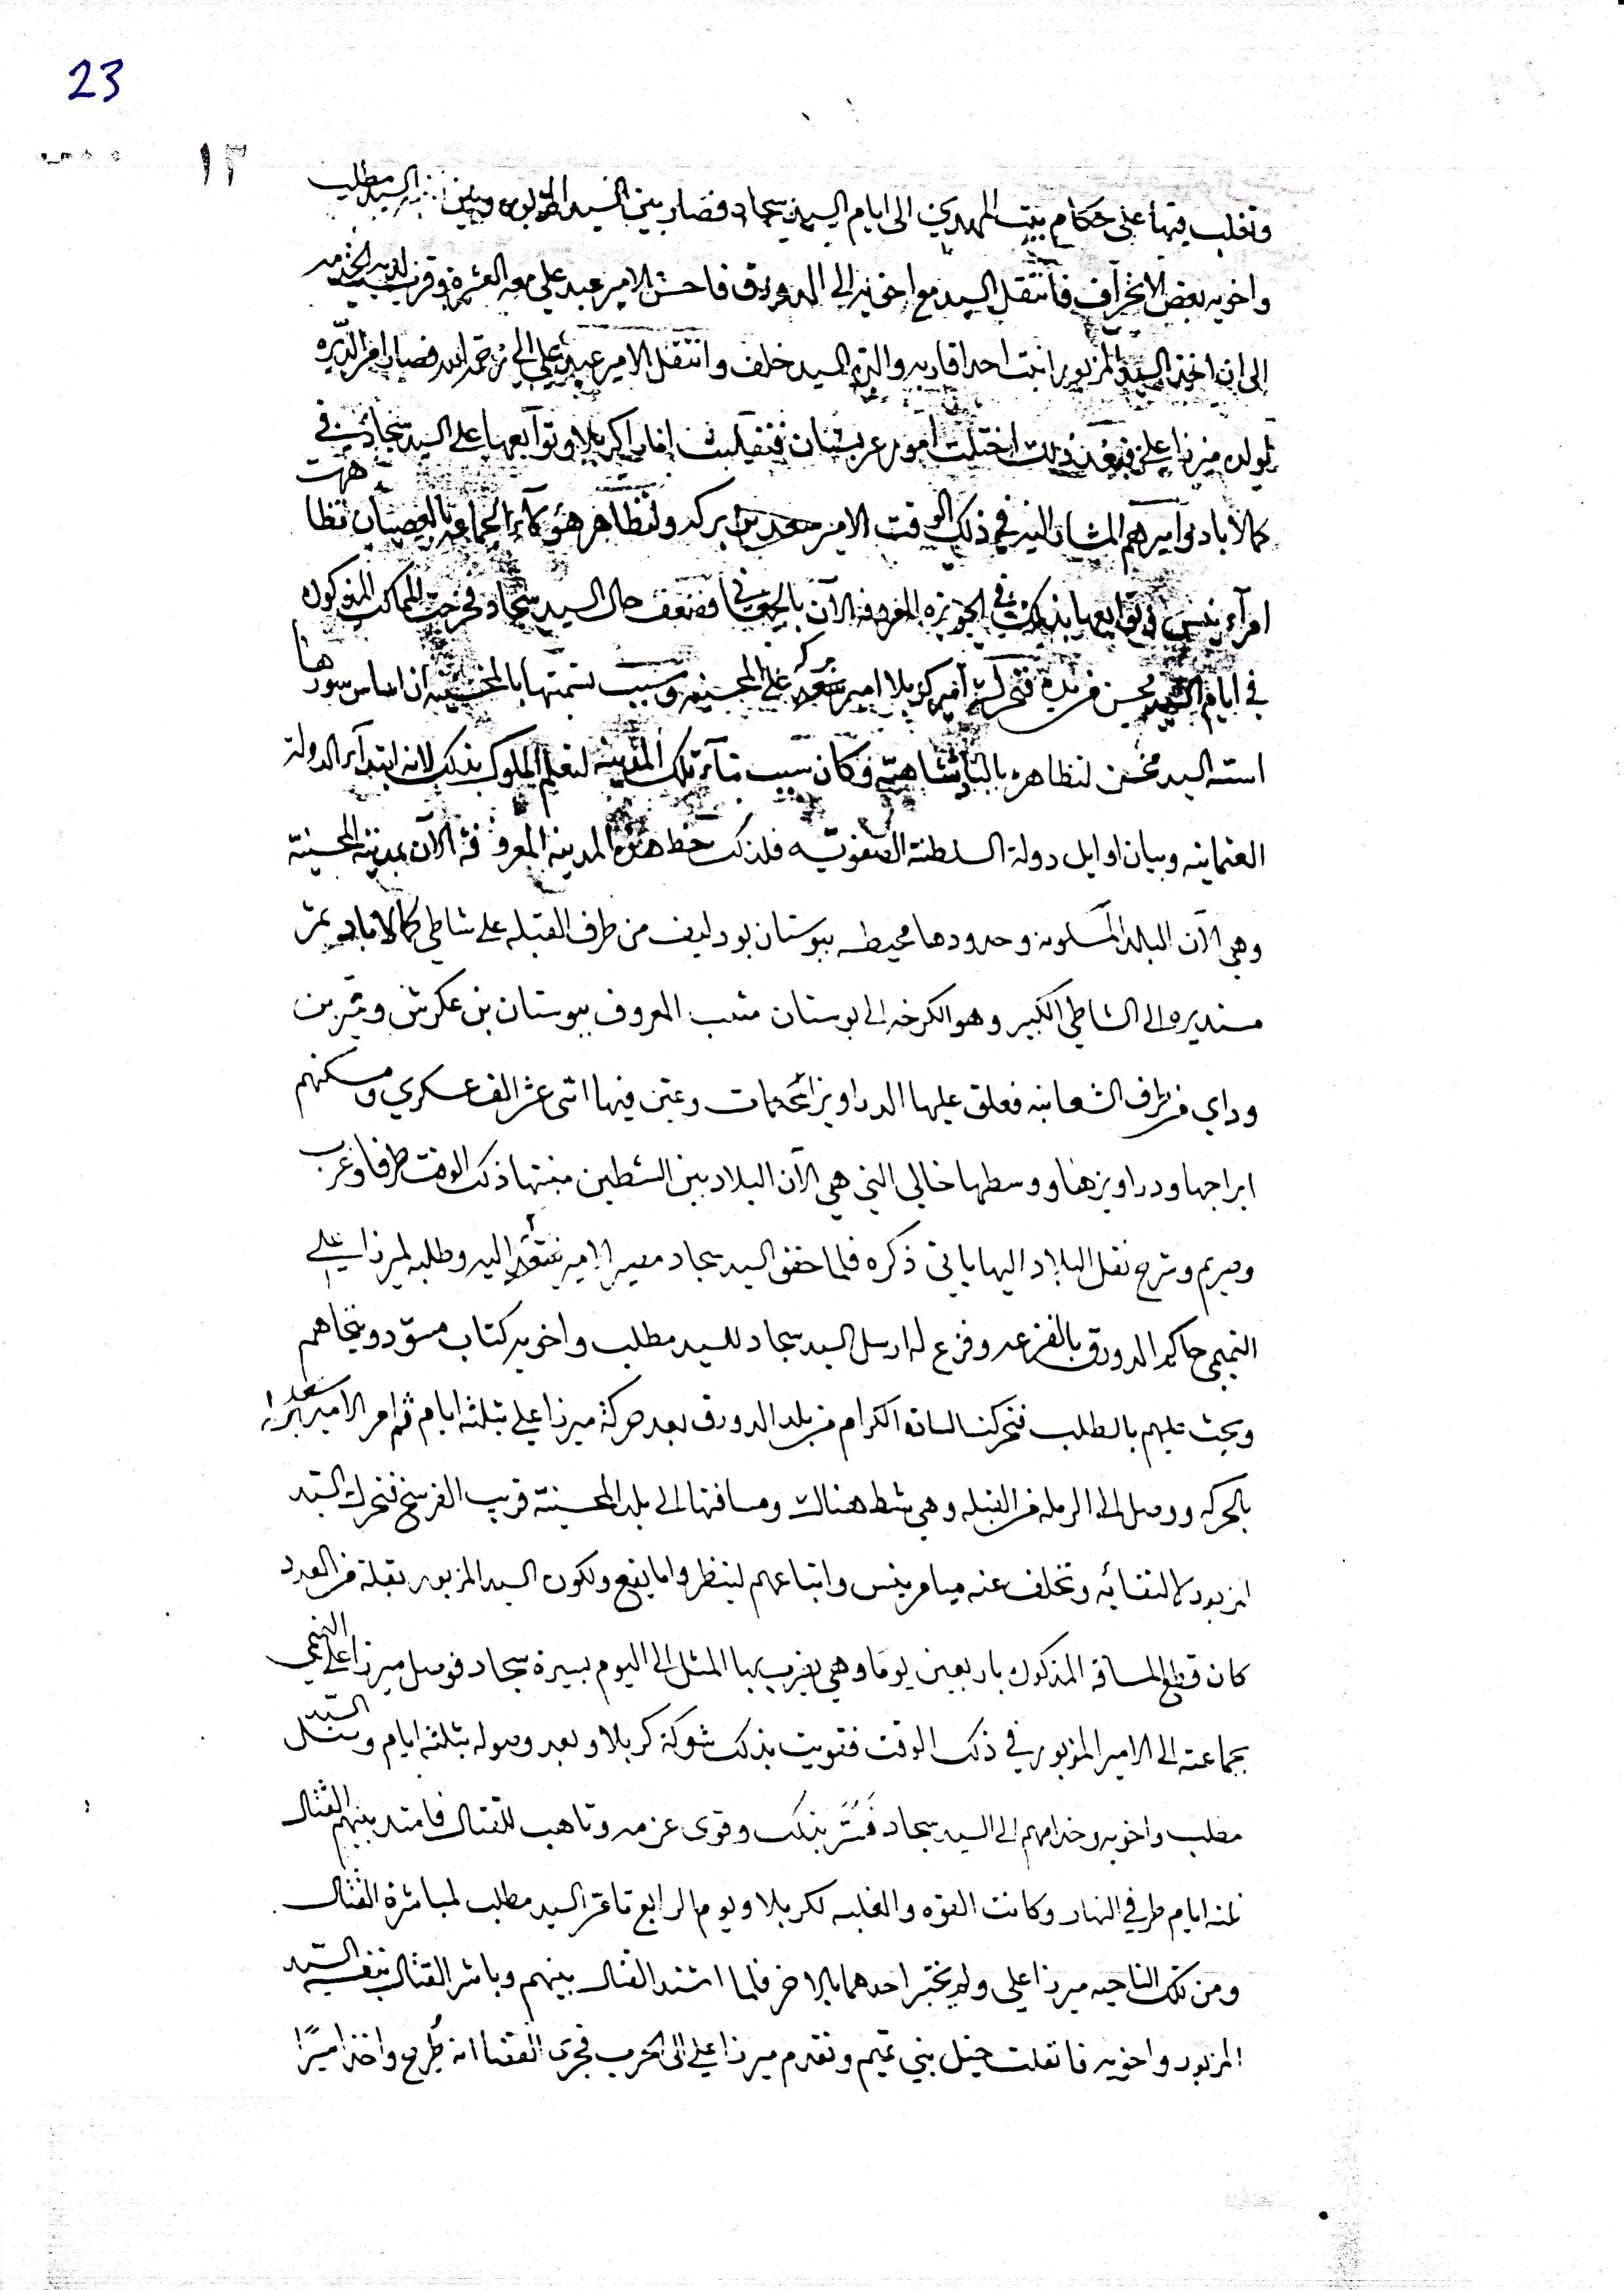 23
١٣
وتغلب فيها على حكام بيت المهدي الى ايام السيد سجاد فصار بين السيد المزبور وبين السيد مطلب
واخويه بعض الانحراف فانتقل السيد مع اخويه الى الدورق فاحسن الامير عبد علي معه العشرة وقرب
الى ان اخذ السيد المزبور ابنت احد اقاربه والدة السيد خلف وانتقل الامير عبد علي الى رحمة الله فصار امر الديره
لولده ميرزا علي فبعد ذلك اختلت امور عربستان فتغلبت امارا كربلا وتوابعها على السيد سجاد في
كمالاباد واميرهم المشار اليه في ذلك الوقت الامير سعد بن بركه ولتظاهر هؤلآء الجماعه بالعصيان تظاهرت
امرآء نيس وتوابعها بذلك في الحويزه المعروفه الآن فضعف حال السيد سجاد فخرجت المماكت المذكوره
في ايام السيد محسن فتحرك امير كربلا امير سعد بركه على المحسنيه وسبب تسمتها بالمحسنيه ان اساس سورها
اسسه السيد محسن لتظاهره بالبادشاهيه وكان سبب بنآء تلك المدينه لتغلب الملوك بذلك لانه ابتدآء الدولة
العثمانيه وبيان اوايل دولة السلطنة الصفويه فلذلك خط هذه المدينه المعروفة الآن بمدينة المحسنية
وهي الآن البلد المسكونه وحدودها محيطه ببوستان بودليف من طرف القبله على شاطي كمالاباد تمر
مستديره الى الشاطي الكبير وهو الكرخه الى بوستان متعب المعروف ببوستان بن عكرش وتمر بن
وداي من طرف الشعانبه فعلق عليها الدراويز المحكمات وعين فيها اثني عشر الف عسكري ومسكنهم
ابراجها ودراويزها ووسطها خالي التي هي الآن البلاد بين الشطين منبتها ذلك الوقت طرفا وغرب
وصريم وشرح نقل البلاد اليها ياتي ذكره فلما حقق السيد سجاد مسير الامير سعد اليه وطلبه لميرزا علي
التميمي حاكم الدورق بالفزعه وفزع له ارسل السيد سجاد للسيد مطلب واخويه كتاب مسود وينخاهم
ويحث عليهم بالطلب فتحركت السادة الكرام من بلد الدورق بعد حركة ميرزا علي بثلثه ايام ثم امر الامير سعد بركه
بالحركه ووصل الى الرمله من القبله وهي شط هناك ومسافتها الى بلد المحسنية قريب الفرسخ فتحرك السيد
المزبور لالتقائه وتخلف عنه ميامر نيس واتباعهم لينظروا ما يقع ولكون السيد المزبور بقلة من العدد
كان قطع المسافه المذكوره باربعين يوما وهي يضرب بها المثل الى اليوم بسيرة سجاد فوصل ميرزا علي التميمي
بجماعته الى الامير المزبور في ذلك الوقت فقويت بذلك شوكة كربلا وبعد وصوله بثلثه ايام وصل السيد
مطلب واخويه وخدامهم الى السيد سجاد فسر بذلك وقوى عزمه وتاهب للقتال فامتد بينهم القتال
ثلثه ايام طرفي النهار وكانت القوه والغلبه لكربلا ويوم الرابع تامر السيد مطلب لمباشرة القتال
ومن تلك الناحيه ميرزا علي ولم يختبر احدهما بالاخر فلما اشتد القتال بينهم وباشر القتال بنفسه السيد
المزبور واخويه فانفلت خيل بني تميم وتقدم ميرزا علي الى الحرب فجرى القضا انه طُرح واخذ اسيرًا